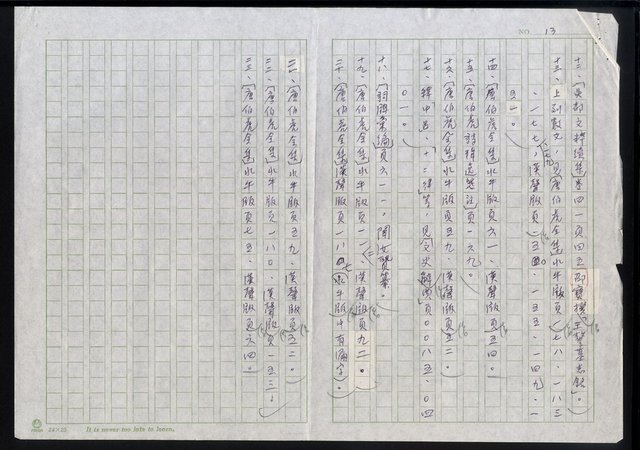 NO. 13
十二、「吳都文粹續集」卷四一頁四五邵寶撰王𨥤墓志銘。
十三、上列數見「唐伯虎全集」水牛版頁一七八、一八三
、一七七,漢聲版頁一五〇、一五五、一四九、一
五一。
十四、「唐伯虎全集」水牛版頁六一、漢聲版頁五四。
十五、「唐伯虎詩輯逸箋注」頁一六九。
十六、「唐伯虎全集」水牛版頁五九、漢聲版頁五二。
十七、
〇一。
十八、「詞學彙編」頁六一一。
十九、「唐伯虎全集」水牛版頁一一一、漢聲版頁九二。
二十、「唐伯虎全集」漢聲版頁一八四(水牛版中有漏字)。
二一、「唐伯虎全集」水牛版頁五九、漢聲版頁五二。
二二、「唐伯虎全集」水牛版頁一八〇、漢聲版頁一五三。
二三、「唐伯虎全集」水牛版頁七五、漢聲版頁六四。
24×25 It is never too late to learn.